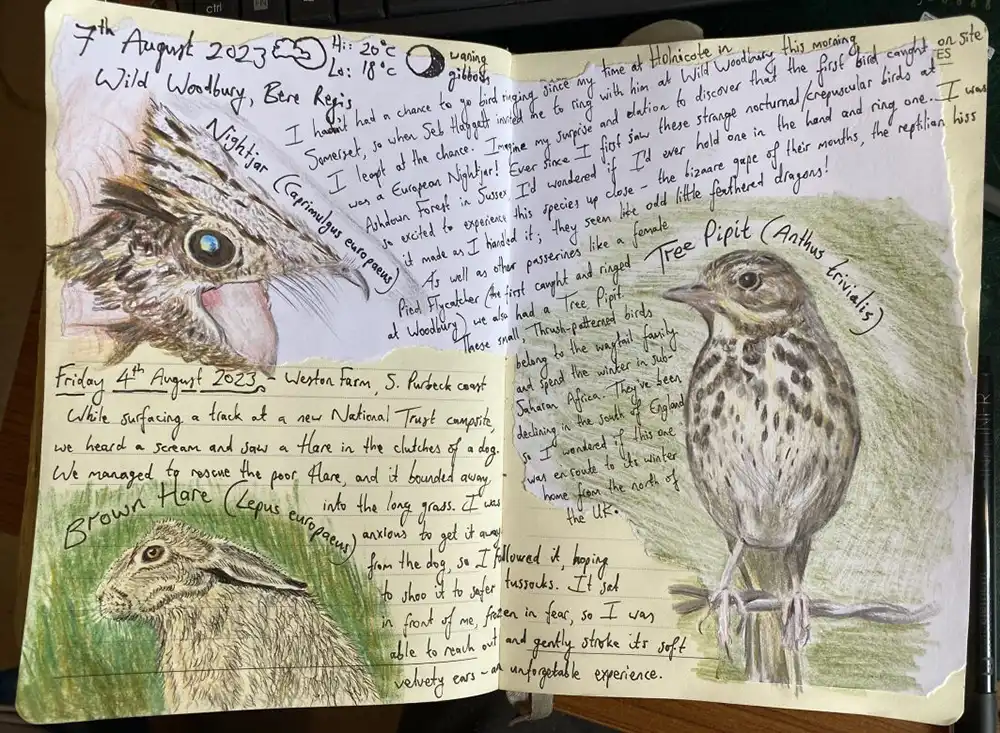 7th August 2023
Hi: 20°c
Lo: 18°c
waning
gibbous
Wild Woodbury, Bere Regis
I hadn't had a chance to go bird ringing since my time at Holnicote in
Somerset, so when Seb Haggett invited me to ring with him at Wild Woodbury this morning
I leapt at the chance. Imagine my surprise and elation to discover that the first bird caught on site
was a European Nightjar! Ever since I first saw these strange nocturnal/crepuscular birds at
Ashdown Forest in Sussex I'd wondered if I'd ever hold one in the hand and ring one. I was
so excited to experience this species up close - the bizaare gape of their mouths, the reptilian hiss
it made as I handled it; they seem like odd little feathered dragons!
As well as other passerines like a female
Pied Flycatcher (the first caught and ringed
at Woodbury) we also had a Tree Pipit.
These small, Thrush-patterned birds
belong to the wagtail family
and spend the winter in sub-
Saharan Africa. They've been
declining in the south of England
so I wondered if this one
was en route to its winter
home from the north of
the UK.
Nightjar (Caprimulgus europaeus)
Tree Pipit (Anthus trivialis)
ES
Friday 4th August 2023 - Weston Farm, S. Purbeck coast
While surfacing a track at a new National Trust campsite,
we heard a scream and saw a Hare in the clutches of a dog.
We managed to rescue the poor Hare, and it bounded away
into the long grass. I was
anxious to get it away
from the dog, so I followed it, hoping
to shoo it to safer tussocks. It sat
in front of me, frozen in fear, so I was
able to reach out and gently stroke its soft
velvety ears - an unforgettable experience.
Brown Hare (Lepus europaeus)